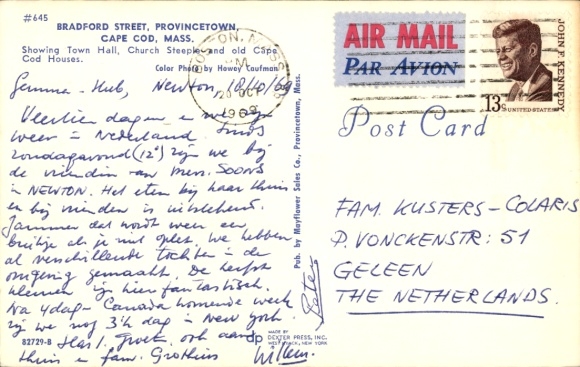 #645
BRADFORD STREET, PROVINCETOWN,
CAPE COD, MASS.
Showing Town Hall, Church Steeple and old Cape
Cod Houses.
Color Photo by Howey Caufman
Newton 18/10/69
Veertien dagen en we zijn
weer in Nederland. Sinds
zondagavond (12e) zijn we bij
de vriendin van mevr. SOONS
in NEWTON. Het eten bij haar thuis
en bij vrienden is uitstekend.
Jammer dat wordt weer een
buikje als je niet oplet. We hebben
al verschillende tochten in de
omgeving gemaakt. De herfst
kleuren zijn hier fantastisch.
Na 4 dagen Canada komende week
zijn we nog 3½ dag in New York.
Groet. ook aan
thuis en fam. Grothuis
Willem.
Peter
82729-B
BOSTON, MASS
PM
20 OCT
1969
AIR MAIL
PAR AVION
JOHN F. KENNEDY
13c UNITED STATES
Post Card
Pub. by Mayflower Sales Co., Provincetown, Mass.
FAM. KUSTERS-COLARIS
P. VONCKENSTR: 51
GELEEN
THE NETHERLANDS.
dp
MADE BY
DEXTER PRESS, INC.
WEST NYACK, NEW YORK